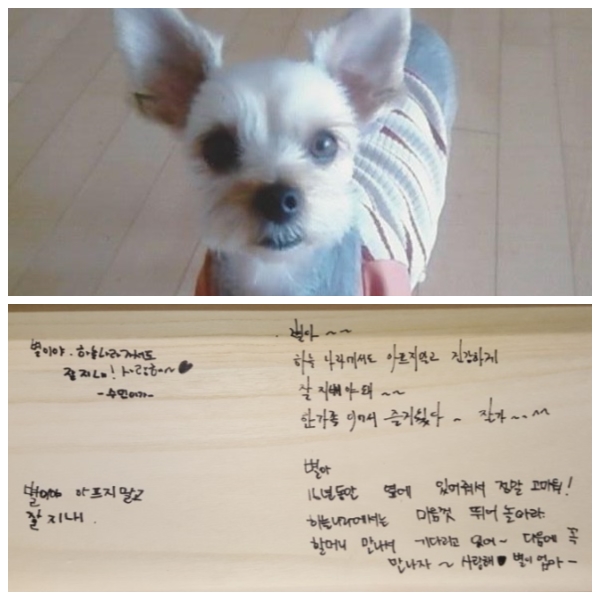 별이야. 하늘나라 가서도
잘 지내! 사랑해~♥
- 수민이가 -
별이야 아프지 말고
잘 지내.
별아 ~~
하늘 나라에서도 아프지 않고 건강하게
잘 지내야 돼 ~~
한가족 이어서 즐거웠다 ~ 잘가~~
별아
16년동안 옆에 있어줘서 정말 고마워!
하늘나라에서는 마음껏 뛰어 놀아라
할머니 만나서 기다리고 있어~ 다음에 꼭
만나자 ~ 사랑해♥ 별이 엄마 -